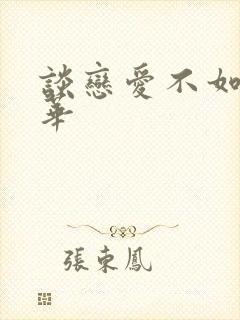 談戀愛不如
華
張東鳳